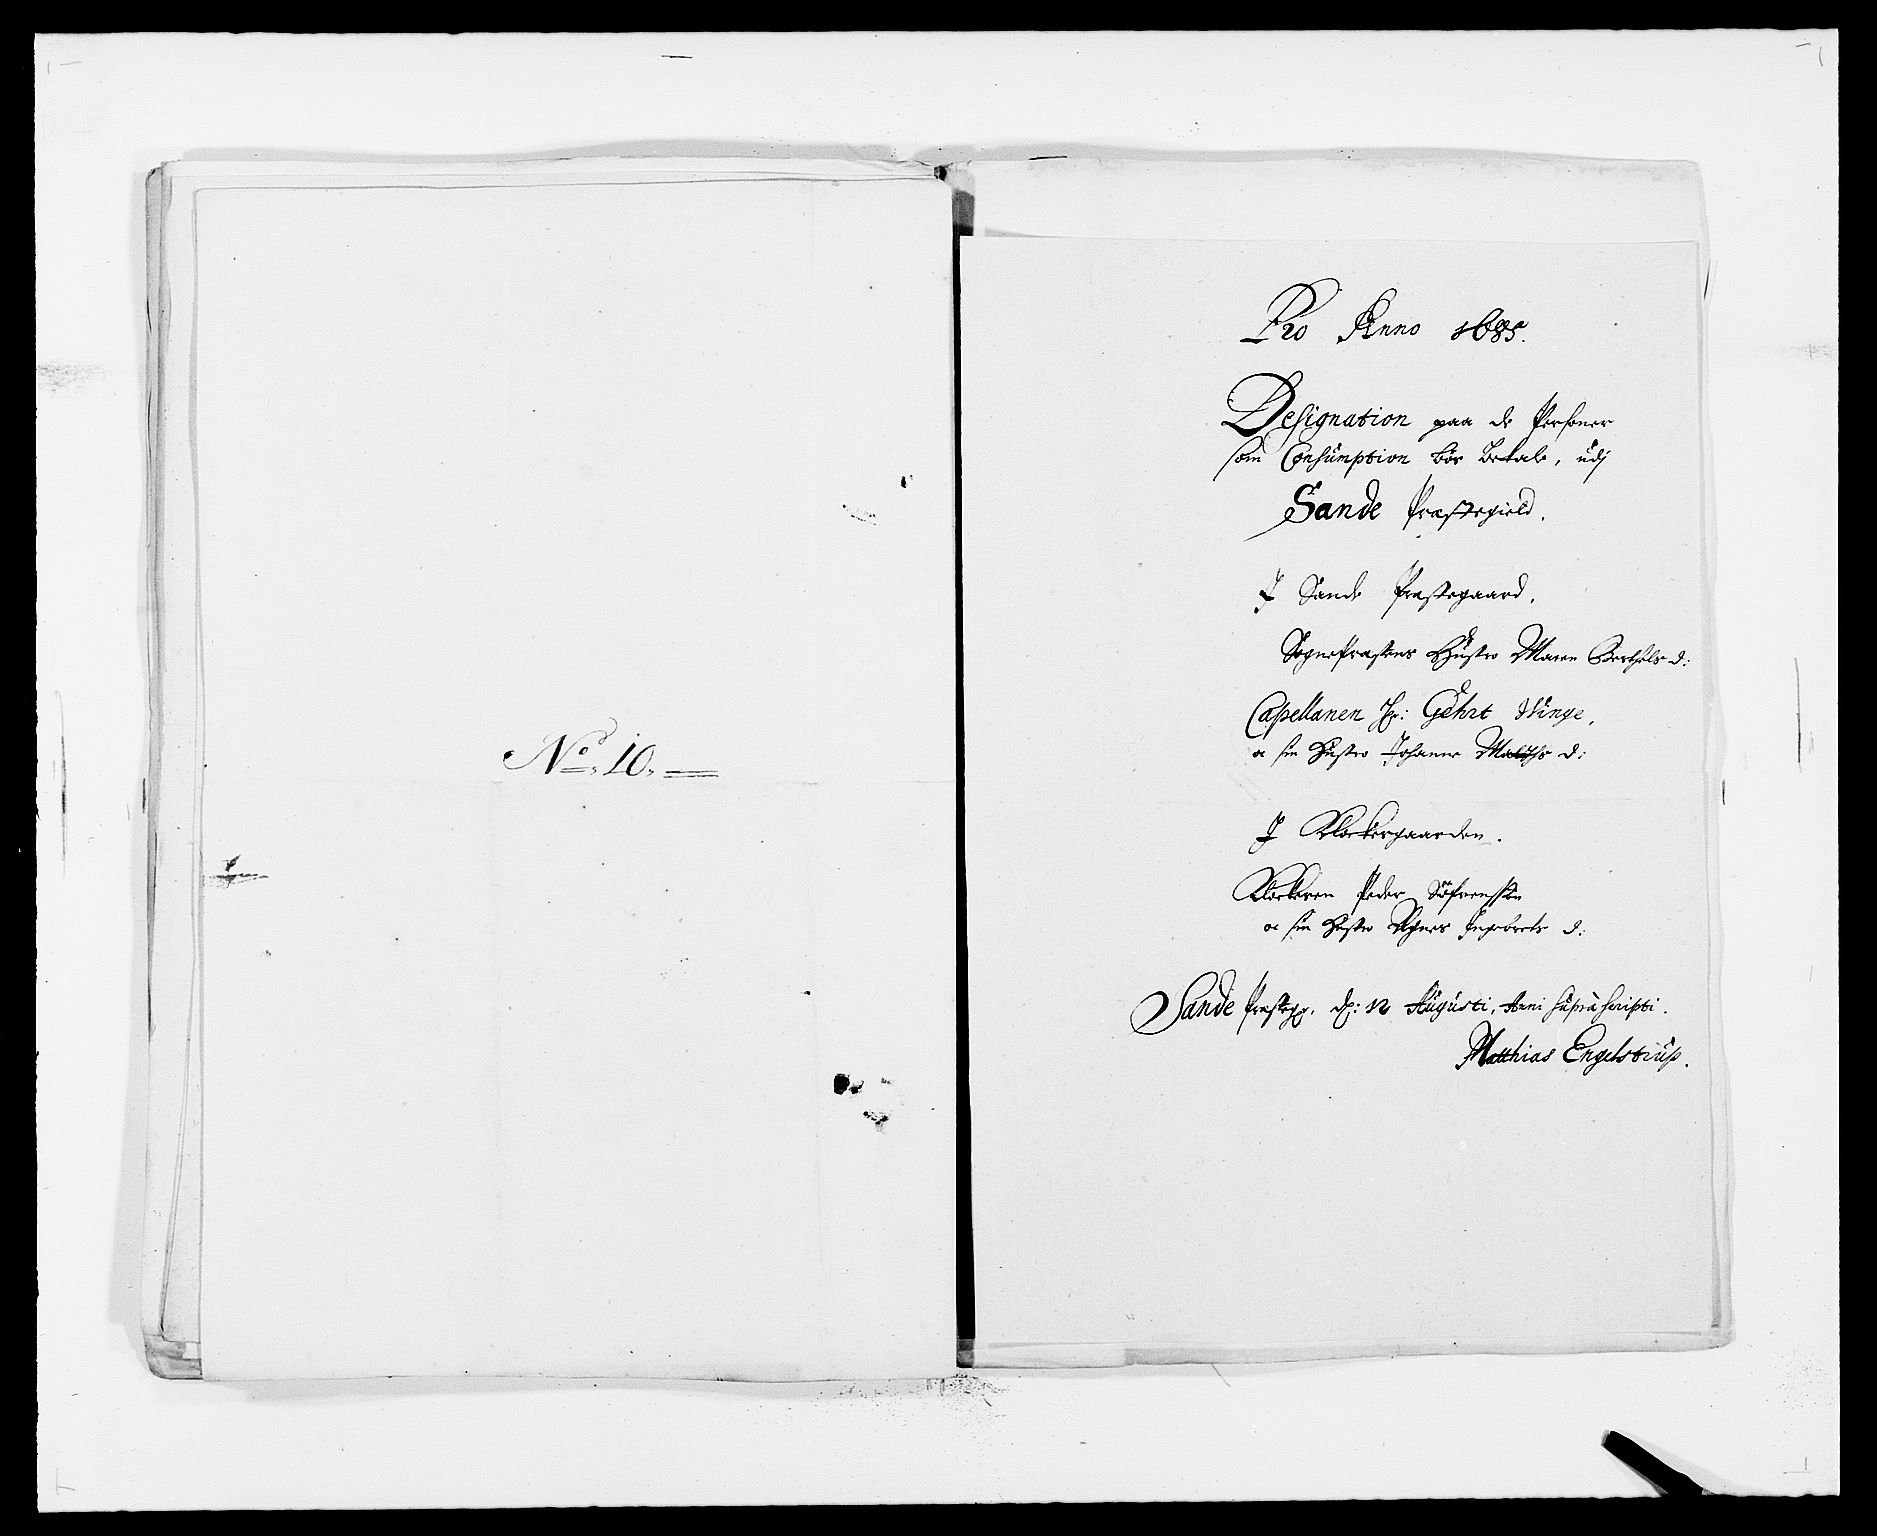 No. 10.
Pro Anno 1685.
Designation paa de Personer
som Consumption bör betale, udj
Sande Præstegield.
J Sande Præstegaard.
Sognepræstens Hustro Maren Berthels d:
Capellanen Hr: Gehrt Winge,
oc sin Hustro Johanne d:
J Klockergaarden.
Klockeren Peder Söfrenssön
oc sin Hustro Agnes Ingebrets d:
Sande Præstegg. dn: 12 Augusti, Anni supra scripti.
Matthias Engelstrup.